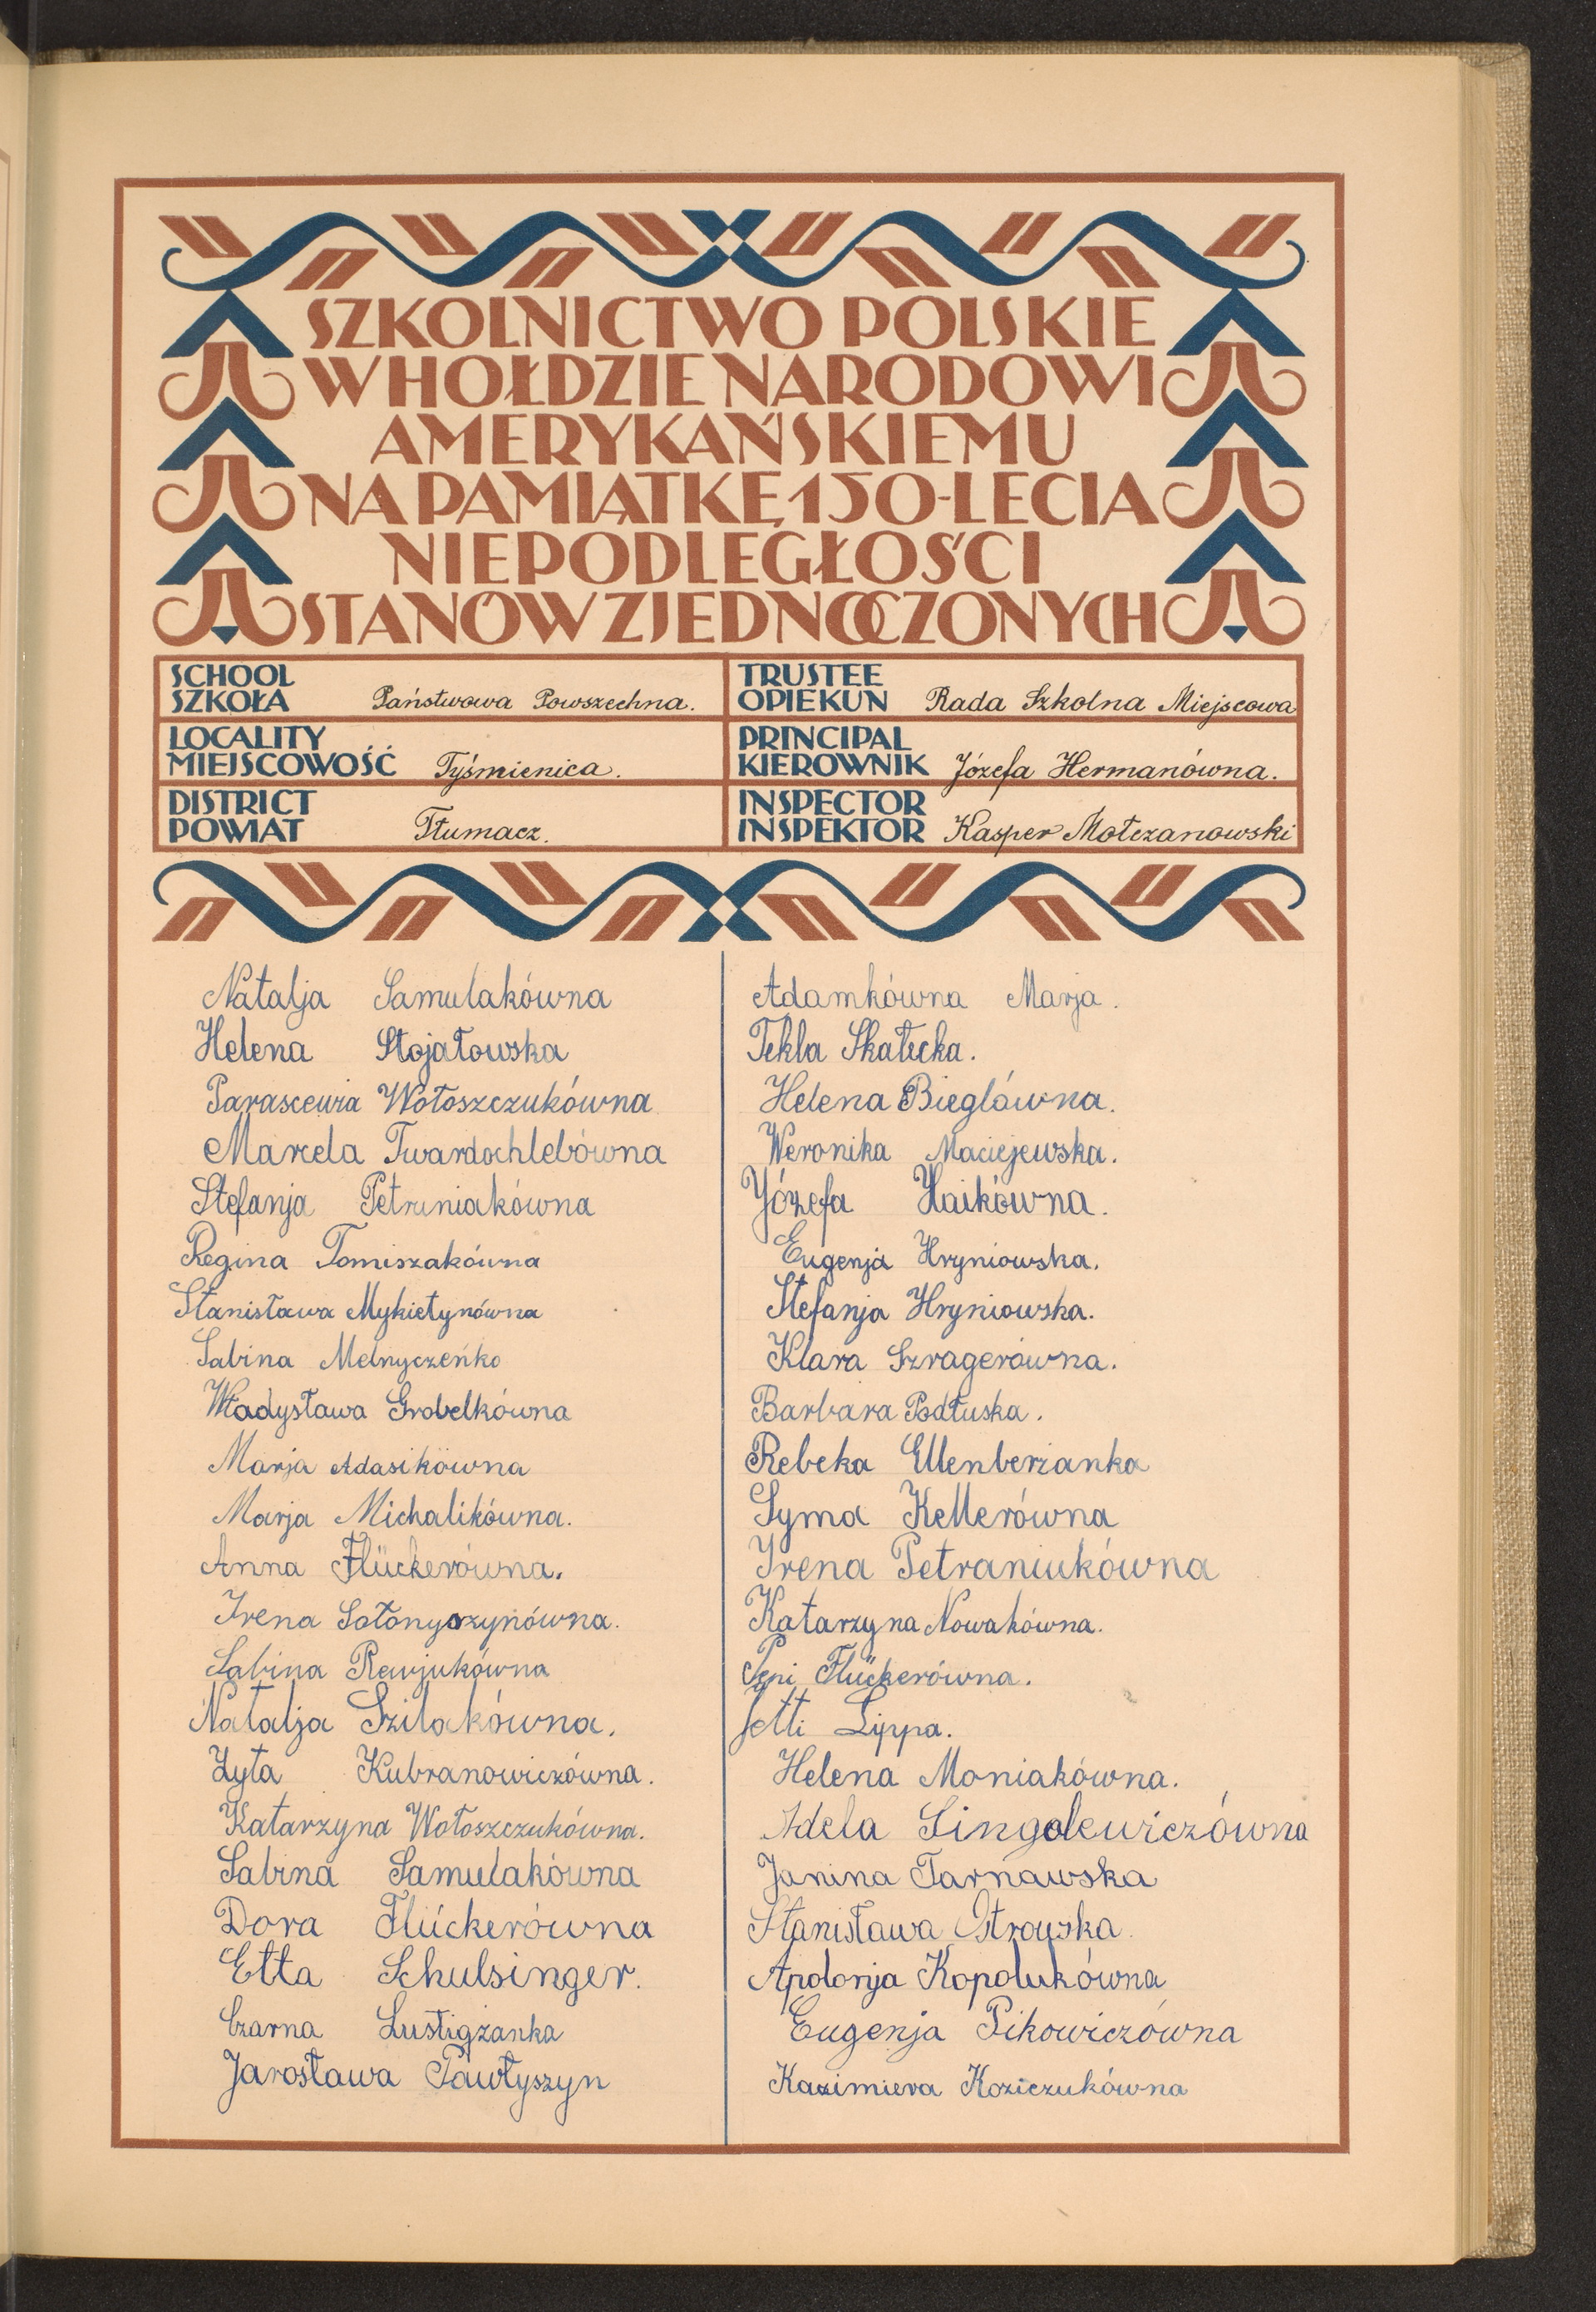 SZKOLNICTWO POLSKIE
W HOŁDZIE NARODOWI
AMERYKAŃSKIEMU
NA PAMIĄTKĘ 150-LECIA
NIEPODLEGŁOŚCI
STANÓW ZJEDNOCZONYCH
SCHOOL
SZKOŁA Państwowa Powszechna.
TRUSTEE
OPIEKUN Rada Szkolna Miejscowa
LOCALITY
MIEJSCOWOŚĆ Tyśmienica.
PRINCIPAL
KIEROWNIK Józefa Hermanówna.
DISTRICT
POWIAT Tłumacz.
INSPECTOR
INSPEKTOR Kasper Mołczanowski
Natalja Samulakówna
Helena Stojałowska
Parascewia Wołoszczukówna
Marcela Twardochlebówna
Stefanja Petruniakówna
Regina Tomiszakówna
Stanisława Mykietynówna
Sabina Melnyczeńko
Władysława Grobelkówna
Marja Adasikówna
Marja Michalikówna.
Anna Flückerówna.
Irena Sołonyczynówna.
Sabina Rewjukówna
Natalja Szilakówna.
Zyta Kubranowiczówna.
Katarzyna Wołoszczukówna.
Sabina Samulakówna
Dora Flückerówna
Etta Schulsinger.
Czarna Lustigżanka
Jarosława Pawłyszyn
Adamkówna Marja.
Tekla Skałecka.
Helena Bieglówna.
Weronika Maciejewska.
Józefa Haikówna.
Eugenja Hryniowska.
Stefanja Hryniowska.
Klara Szragerówna.
Barbara Podłuska.
Rebeka Ellenberżanka
Syma Kellerówna
Irena Petraniukówna
Katarzyna Nowakówna.
Pepi Flückerówna.
Jetti Lippa.
Helena Moniakówna.
Adela Singalewiczówna
Janina Tarnawska
Stanisława Ostrowska.
Apolonja Kopolukówna
Eugenja Pikowiczówna
Kazimiera Koziczukówna